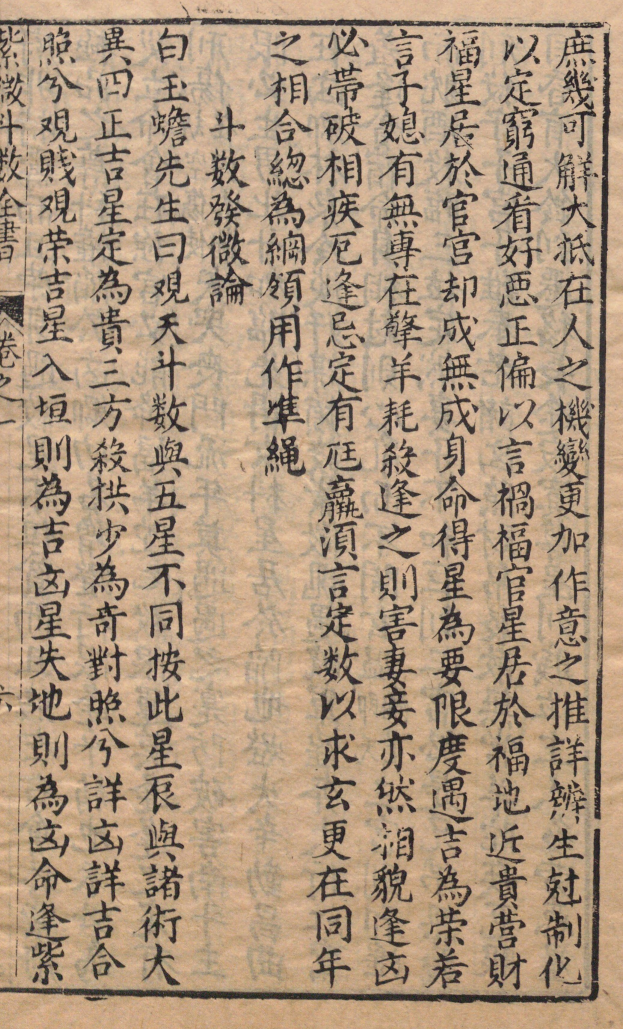 庶幾可觧大抵在人之機變更加作意之推詳辨生尅制化
以定窮通看好恶正偏以言禍福官星居於福地近貴营財
福星居於官宫却成無成身命得星為要限度遇吉為荣若
言子媳有無專在擎羊耗殺逢之則害妻妾亦然相貌逢凶
必帶破相疾厄逢忌定有尫羸湏言定数以求玄更在同年
之相合緫為綱領用作凖䋲
斗数發微論
白玉蟾先生曰观天斗数與五星不同按此星辰與諸術大
異四正吉星定為貴三方殺拱少為奇對照兮詳凶詳吉合
照兮观賎观荣吉星入垣則為吉凶星失地則為凶命逢紫
紫微斗数全書 卷之一 六